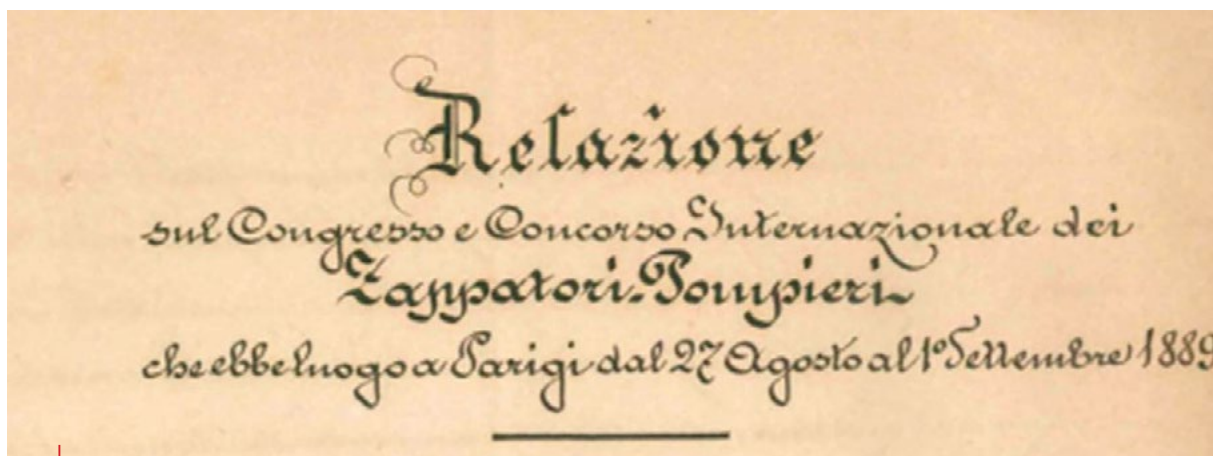 Relazione
sul Congresso e Concorso Internazionale dei
Zappatori-Pompieri
che ebbe luogo a Parigi dal 27 Agosto al 1º Settembre 1889